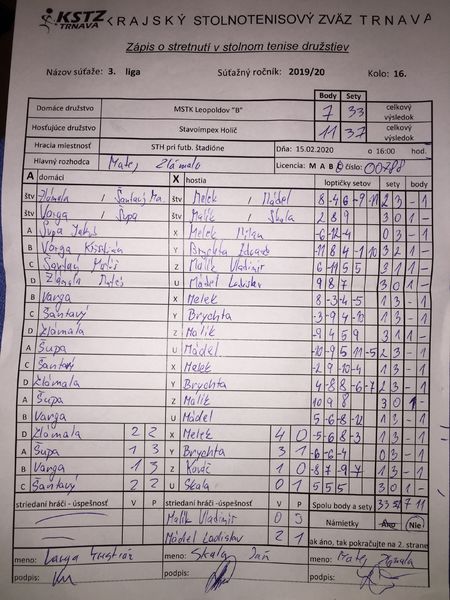 KSTZ
TRNAVA
KRAJSKÝ STOLNOTENISOVÝ ZVÄZ TRNAVA
Zápis o stretnutí v stolnom tenise družstiev
Názov súťaže: 3. liga Súťažný ročník: 2019/20 Kolo: 16.
Body Sety
Domáce družstvo MSTK Leopoldov "B" 7 33 celkový výsledok
Hosťujúce družstvo Stavoimpex Holíč 11 37 celkový výsledok
Hracia miestnosť STH pri futb. štadióne Dňa: 15.02.2020 o 16:00 hod.
Hlavný rozhodca Matej Zlámala Licencia: M A B C číslo: 00788
A domáci X hostia loptičky setov sety body
štv Zlámala / Šantavý Ma. štv Melek / Mádel 8 -4 -6 -9 -11 2 3 - 1
štv Varga / Šupa štv Malík / Skala 2 8 9 3 0 1 -
A Šupa X Melek Milan -6 -12 -4 0 3 - 1
B Varga Kristián Y Brychta -11 8 4 -1 10 3 2 1 -
C Šantavý Matúš Z Malík Vladimír 6 -11 5 5 3 1 1 -
D Zlámala Matej U Mádel Ladislav 9 8 7 3 0 1 -
B Varga X Melek 8 -3 -4 -5 1 3 - 1
C Šantavý Y Brychta -3 -9 4 -10 1 3 - 1
D Zlámala Z Malík -9 4 5 9 3 1 1 -
A Šupa U Mádel -10 -9 5 11 -5 2 3 - 1
C Šantavý X Melek -2 9 -10 -4 1 3 - 1
D Zlámala Y Brychta -4 -8 8 -6 -7 1 3 - 1
A Šupa Z Malík 10 9 8 3 0 1 -
B Varga U Mádel 5 -6 -8 -12 1 3 - 1
D Zlámala 2 2 X Melek 4 0 -5 -6 8 -3 1 3 - 1
A Šupa 1 3 Y Brychta 3 1 -6 -6 -4 0 3 - 1
B Varga 1 3 Z Kováč 1 0 -8 7 -9 -7 1 3 - 1
C Šantavý 2 2 U Skala 0 1 5 5 5 3 0 1 -
striedaní hráči - úspešnosť V P striedaní hráči - úspešnosť V P Spolu body a sety 33 37 7 11
Malík Vladimír 0 3 Námietky Áno Nie
Mádel Ladislav 2 1 ak áno, tak pokračujte na 2. strane
meno: Varga Kristián meno: Skala Ján meno: Matej Zlámala
podpis: podpis: podpis: